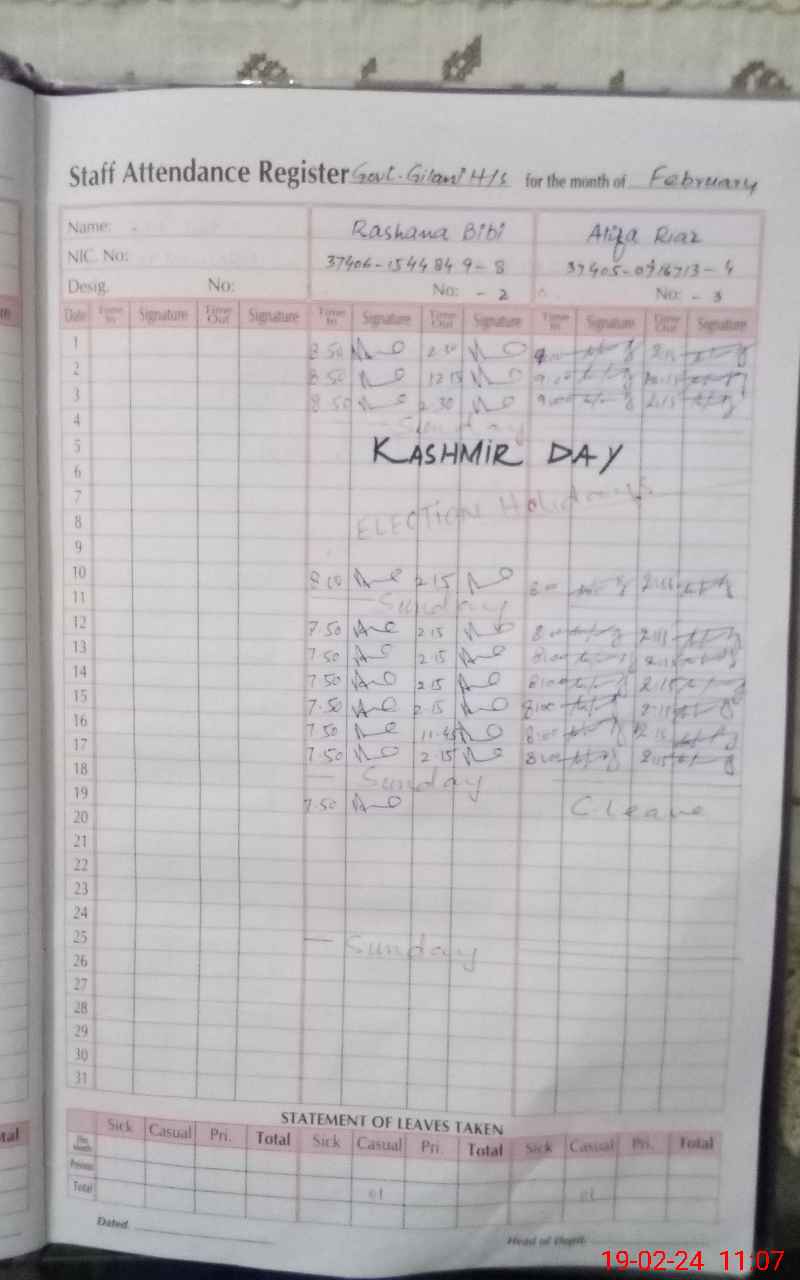 Staff Attendance Register Govt. Gilani H/S for the month of February
Name: Rashana Bibi Atifa Riaz
NIC. No: 37406-1544849-8
Desig. No: No: -2 No: -3
Date Time In Signature Time Out Signature Time In Signature Time Out Signature Time In Signature Time Out Signature
1 8.50
2 8.50 12.15 9.00
3 8.50 2.30 9.00 2.15
4 Sunday
5 KASHMIR DAY
6
7
8 ELECTION Holidays
9
10 8.10 2.15
11 Sunday
12 7.50 2.15 8.00 2.15
13 7.50 2.15 8.00 2.15
14 7.50 2.15 8.00 2.15
15 7.50 2.15 8.00 2.15
16 7.50 11.45 8.00
17 7.50 2.15 8.00 2.15
18 Sunday
19 7.50 C.leave
20
21
22
23
24
25 Sunday
26
27
28
29
30
31
STATEMENT OF LEAVES TAKEN
Sick Casual Pri. Total Sick Casual Pri. Total Sick Casual Pri. Total
This Month
Previous
Total 01 01
Dated. Head of Deptt.
19-02-24 11:07